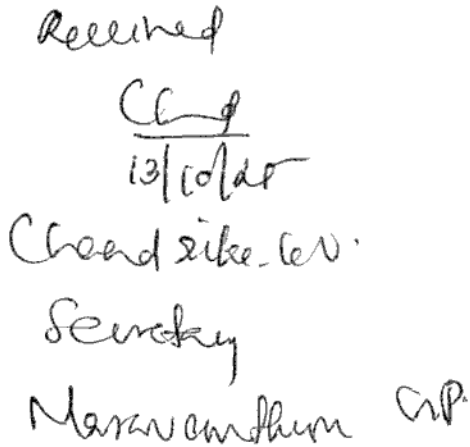 Received
13/10/25
Chandrike. G.N.
Secretary
Maravanthe GP.